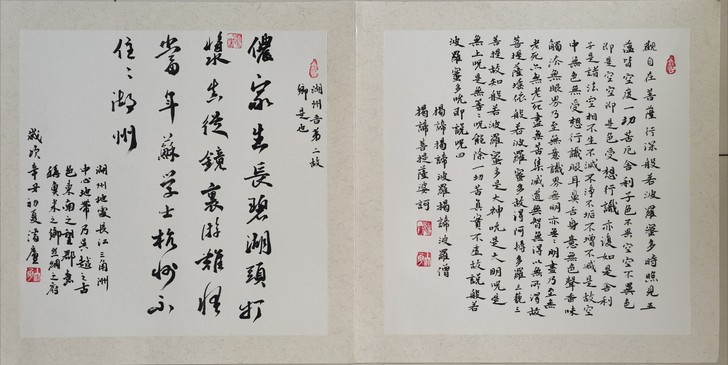 觀自在菩薩行深般若波羅蜜多時照見五
蘊皆空度一切苦厄舍利子色不異空空不異色
色即是空空即是色受想行識亦復如是舍利
子是諸法空相不生不滅不垢不淨不增不減是故空
中無色無受想行識無眼耳鼻舌身意無色聲香味
觸法無眼界乃至無意識界無無明亦無無明盡乃至無
老死亦無老死盡無苦集滅道無智無得以無所得故
菩提薩埵依般若波羅蜜多故得阿耨多羅三藐三
菩提故知般若波羅蜜多是大神咒是大明咒是
無上咒是無等等咒能除一切苦真實不虛故說般若
波羅蜜多咒即說咒曰
揭諦揭諦波羅揭諦波羅僧
揭諦菩提薩婆訶
湖州吾第二故
鄉是也
儂家生長碧湖頭打
槳真從鏡裏游難怪
當年蘇學士杭州不
住住湖州
湖州地處長江三角洲
中心地帶乃吳越之古
邑東南之望郡魚
絲綢之府
歲次辛丑初夏